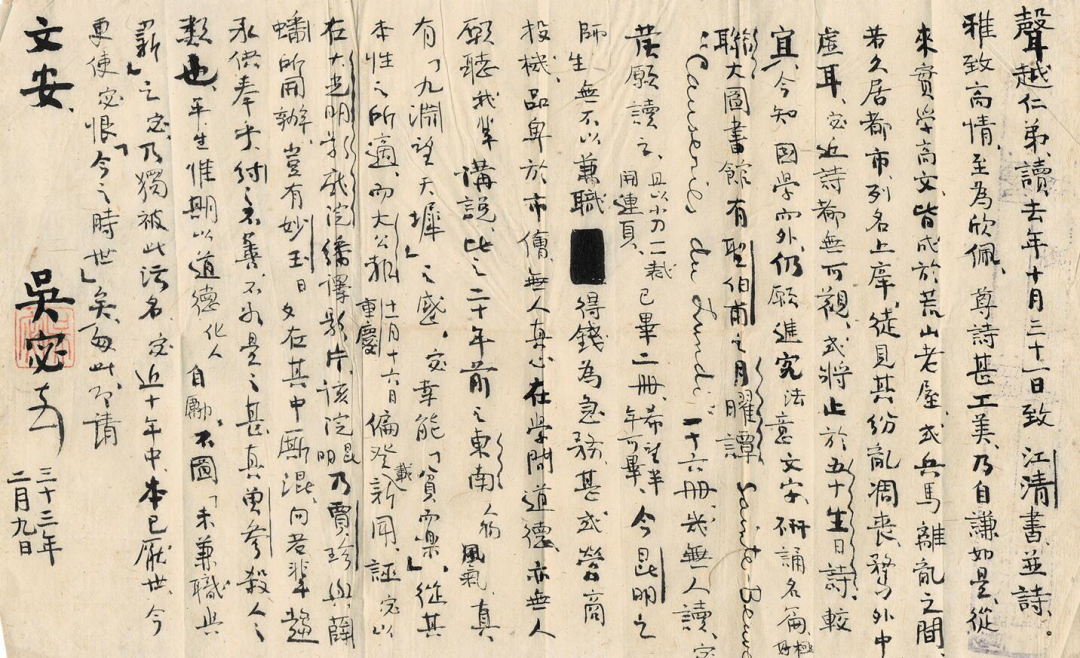 聲越仁弟、讀去年十月三十一日致 江清書、並詩。
雅致高情、至為欣佩、尊詩甚工美、乃自謙如是、從
來實學高文、皆成於荒山老屋、或兵馬離亂之間、
若久居都市、列名上庠、徒見其紛亂凋喪、務外中
虛耳、宓近詩都無可觀、或將止於五十生日詩、較
宜、今知 國學而外、仍願進究法意文字、研誦名篇、極好
聯大圖書館有聖伯甫之月曜譚 Sainte-Beuve
"Causeries du Lundi" 十六冊、幾無人讀、宓
發願讀之、且以小刀一一裁開連頁、已畢二冊、希望半年可畢、今昆明之
師生無不以兼職得錢為急務、甚或營商
投機、品卑於市儈、無人真心在學問道德、亦無人
願聽我輩講說、比之二十年前之東南 風氣、真
有「九淵望天墀」之感、宓幸能「貧而樂」、從其
本性之所適、而大公報 重慶十一月十六日 偏登載新聞、誣宓以
在大光明影戲院繙譯影片、該院昆明乃賈珍與薛
蟠所開辦、豈有妙玉日夕在其中廝混、向若輩趨
承供奉乎、付之不善、不如是之甚、真曾參殺人之
類也、平生惟期以道德化人自勵、不圖「未兼職與
薪」之宓、乃獨被此污名、宓近十年中、本已厭世、今
更使宓恨「今之時世」矣、匆此、即請
文安、
吳宓 
三十三年
二月九日